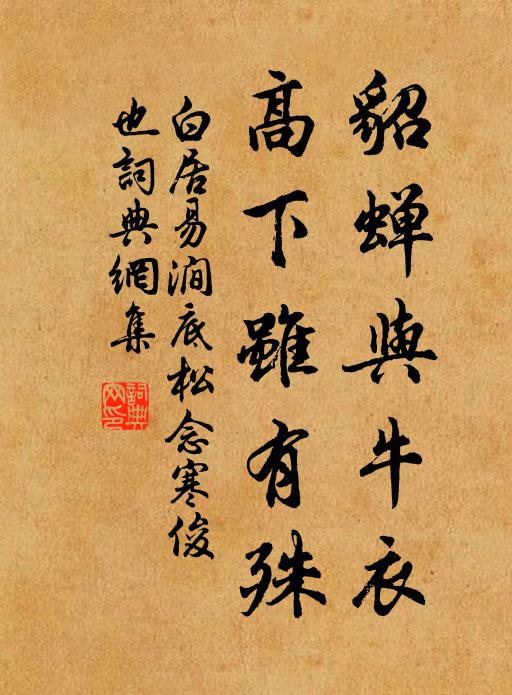 貂蟬與牛衣
高下雖有殊
白居易澗底松念寒俊
也詞典網集
詞典
网印